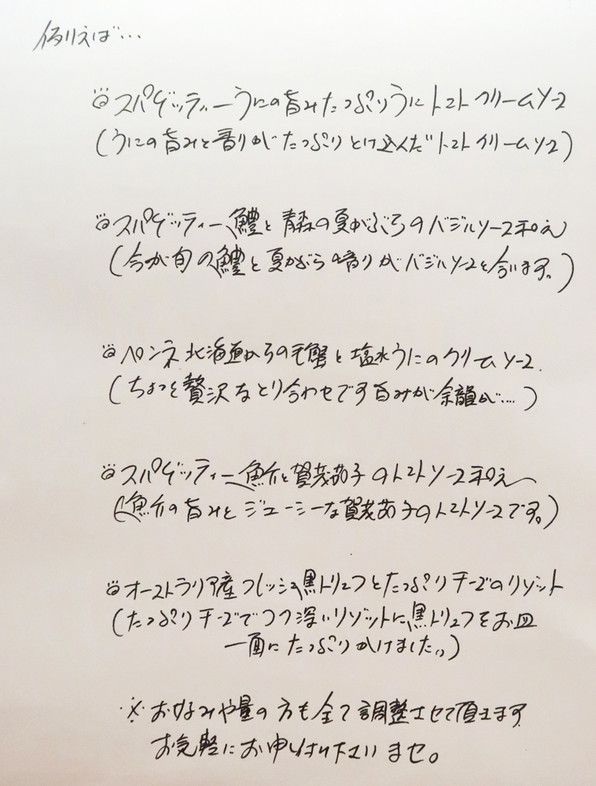 例えば…
スパゲッティーうにの旨みたっぷりうにトマトクリームソース
(うにの旨みと香りがたっぷりとけ込んだトマトクリームソース)
スパゲッティー鱧と青森の夏がぶらのバジルソース和え
(今が旬の鱧と夏かぶら 香りがバジルソースと合います。)
ペンネ 北海道からの毛蟹と塩水うにのクリームソース.
(ちょっと贅沢なとり合わせです旨みが余韻が....)
スパゲッティー魚介と賀茂茄子のトマトソース和え
(魚介の旨みとジューシーな賀茂茄子のトマトソースです。)
オーストラリア産フレッシュ黒トリュフとたっぷりチーズのリゾット
(たっぷりチーズでコク深いリゾットに黒トリュフをお皿
一面にたっぷりかけました。)
※お好みや量の方も全て調整させて頂きます
お気軽にお申し付け下さいませ。